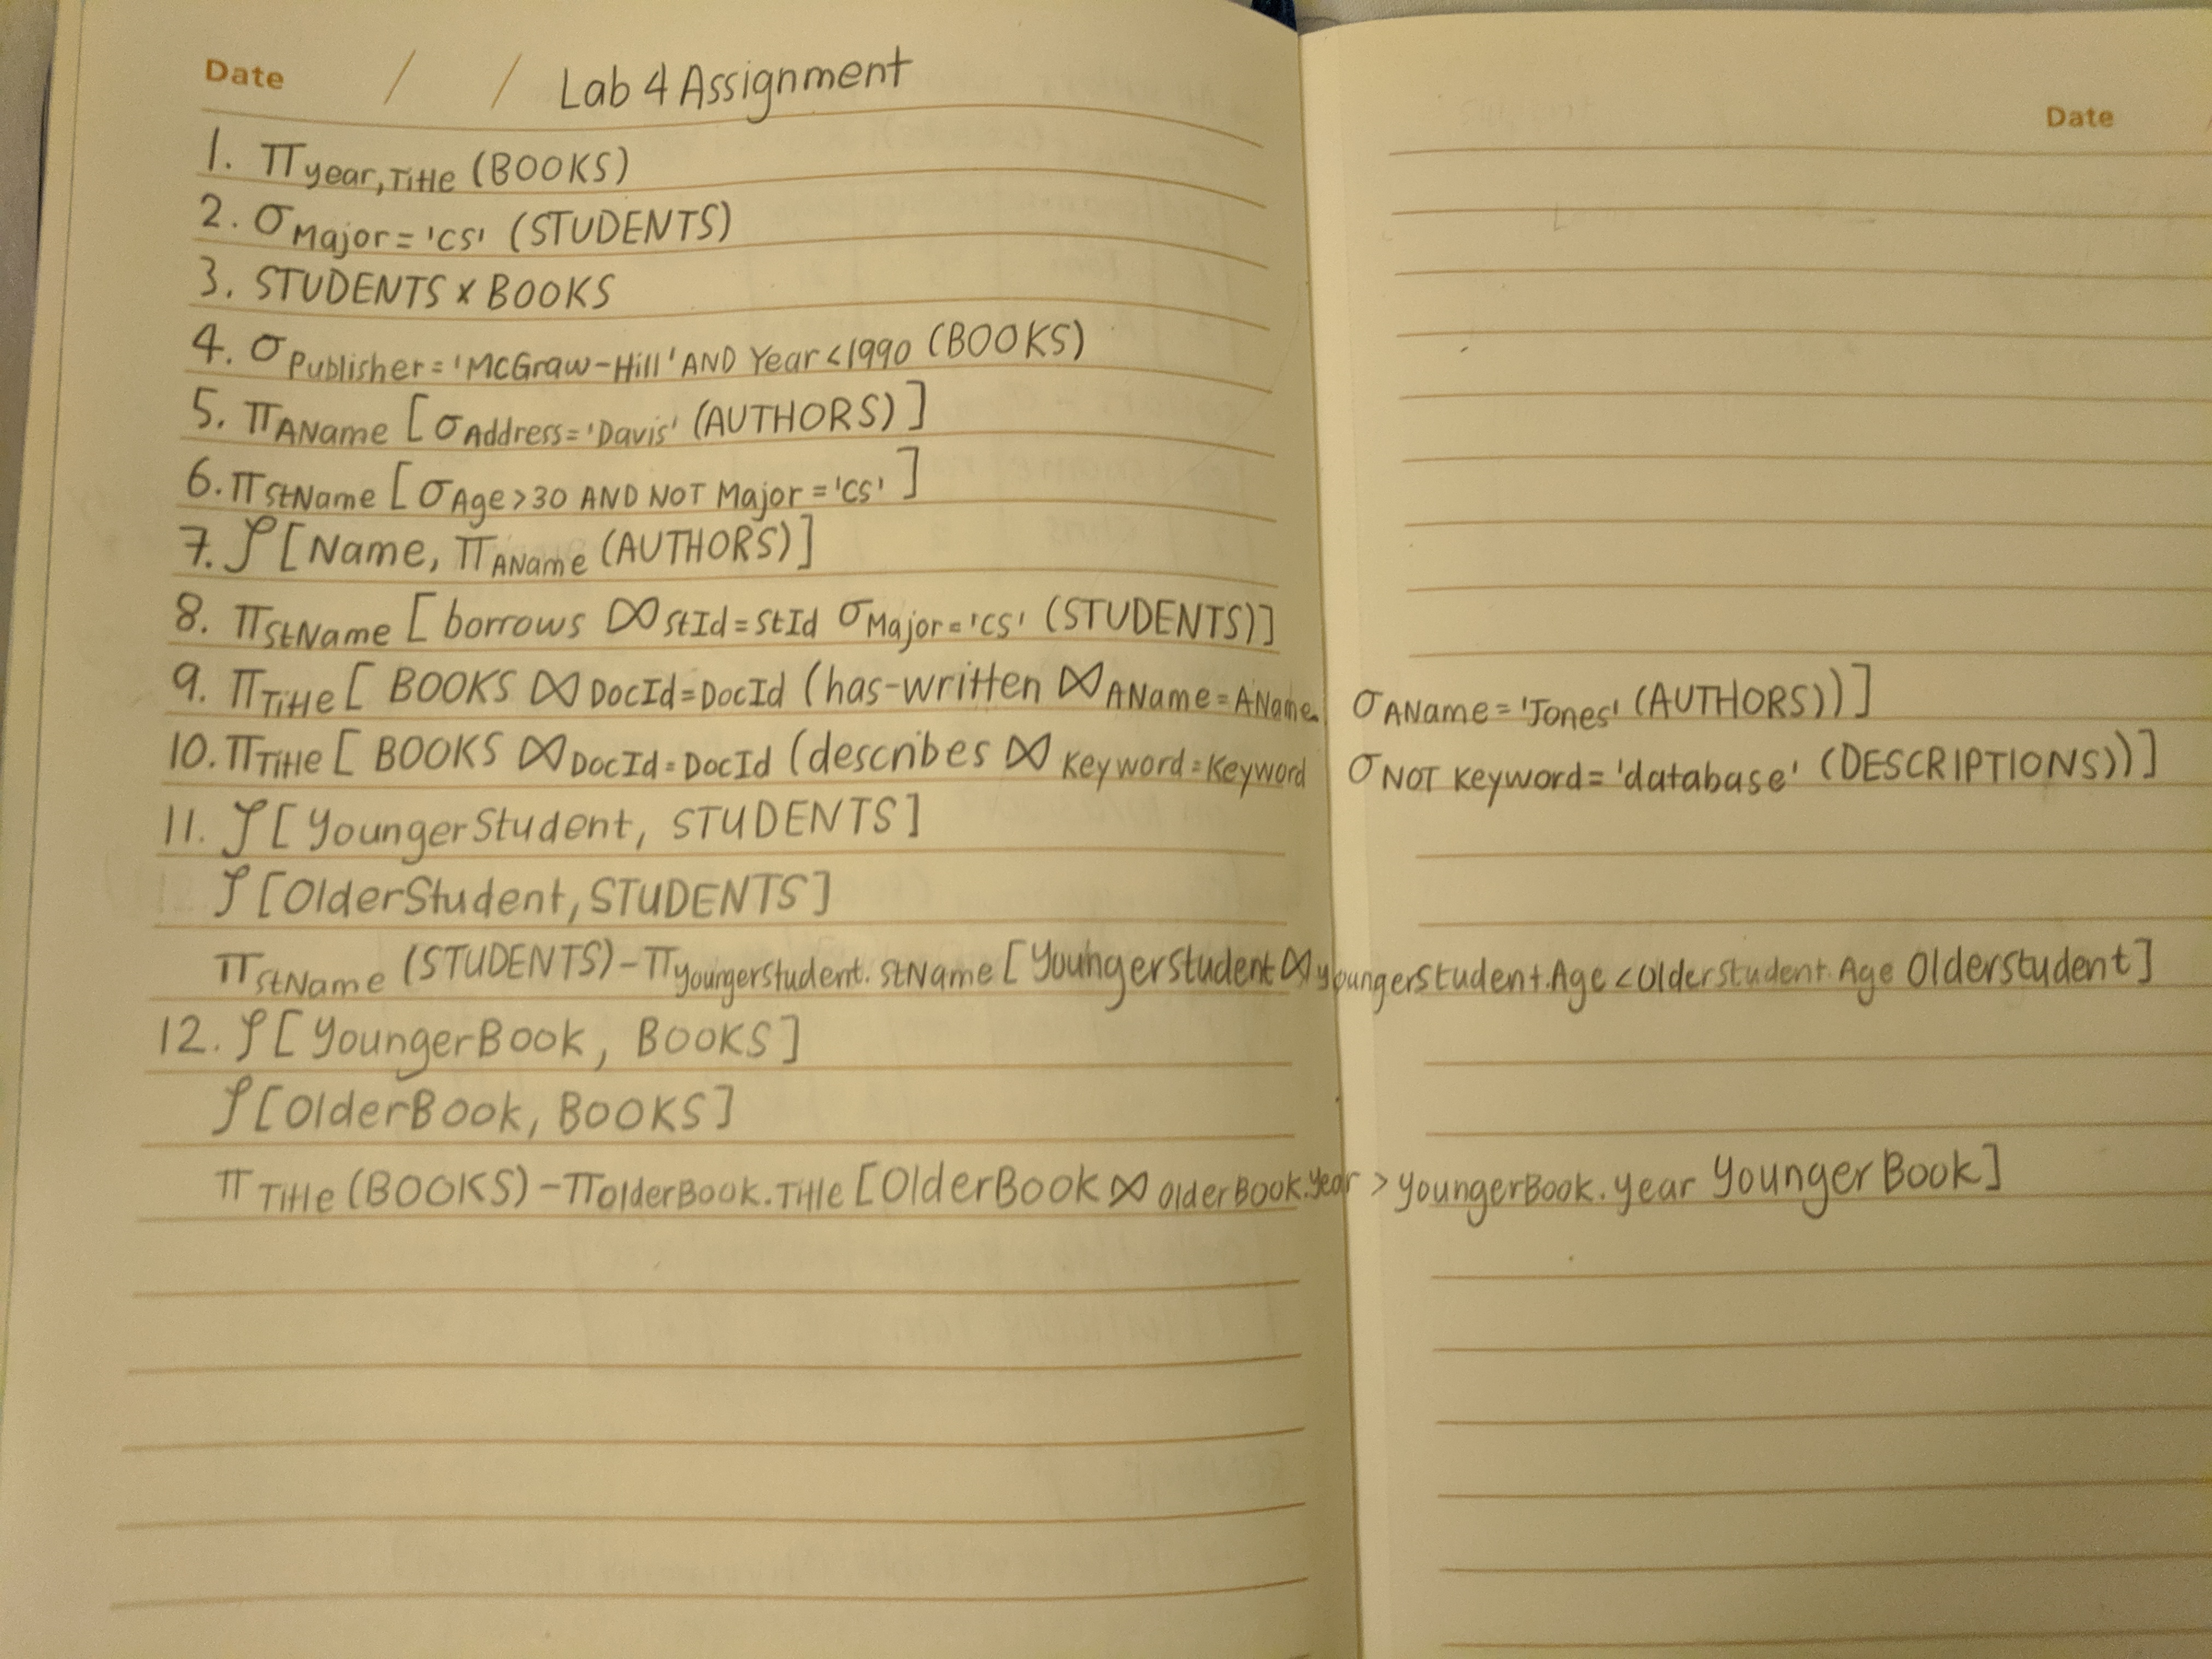 Date / / Lab 4 Assignment
Date
1. π year, Title (BOOKS)
2. σ Major = 'CS' (STUDENTS)
3. STUDENTS x BOOKS
4. σ Publisher = 'McGraw-Hill' AND Year < 1990 (BOOKS)
5. π AName [σ Address = 'Davis' (AUTHORS)]
6. π StName [σ Age > 30 AND NOT Major = 'CS']
7. ρ [Name, π AName (AUTHORS)]
8. π StName [borrows ⋈ StId = StId σ Major = 'CS' (STUDENTS)]
9. π Title [BOOKS ⋈ DocId = DocId (has-written ⋈ AName = AName σ AName = 'Jones' (AUTHORS))]
10. π Title [BOOKS ⋈ DocId = DocId (describes ⋈ Keyword = Keyword σ NOT Keyword = 'database' (DESCRIPTIONS))]
11. ρ [YoungerStudent, STUDENTS]
ρ [OlderStudent, STUDENTS]
π StName (STUDENTS) - π YoungerStudent.StName [YoungerStudent ⋈ YoungerStudent.Age < OlderStudent.Age OlderStudent]
12. ρ [YoungerBook, BOOKS]
ρ [OlderBook, BOOKS]
π Title (BOOKS) - π OlderBook.Title [OlderBook ⋈ OlderBook.year > YoungerBook.year YoungerBook]